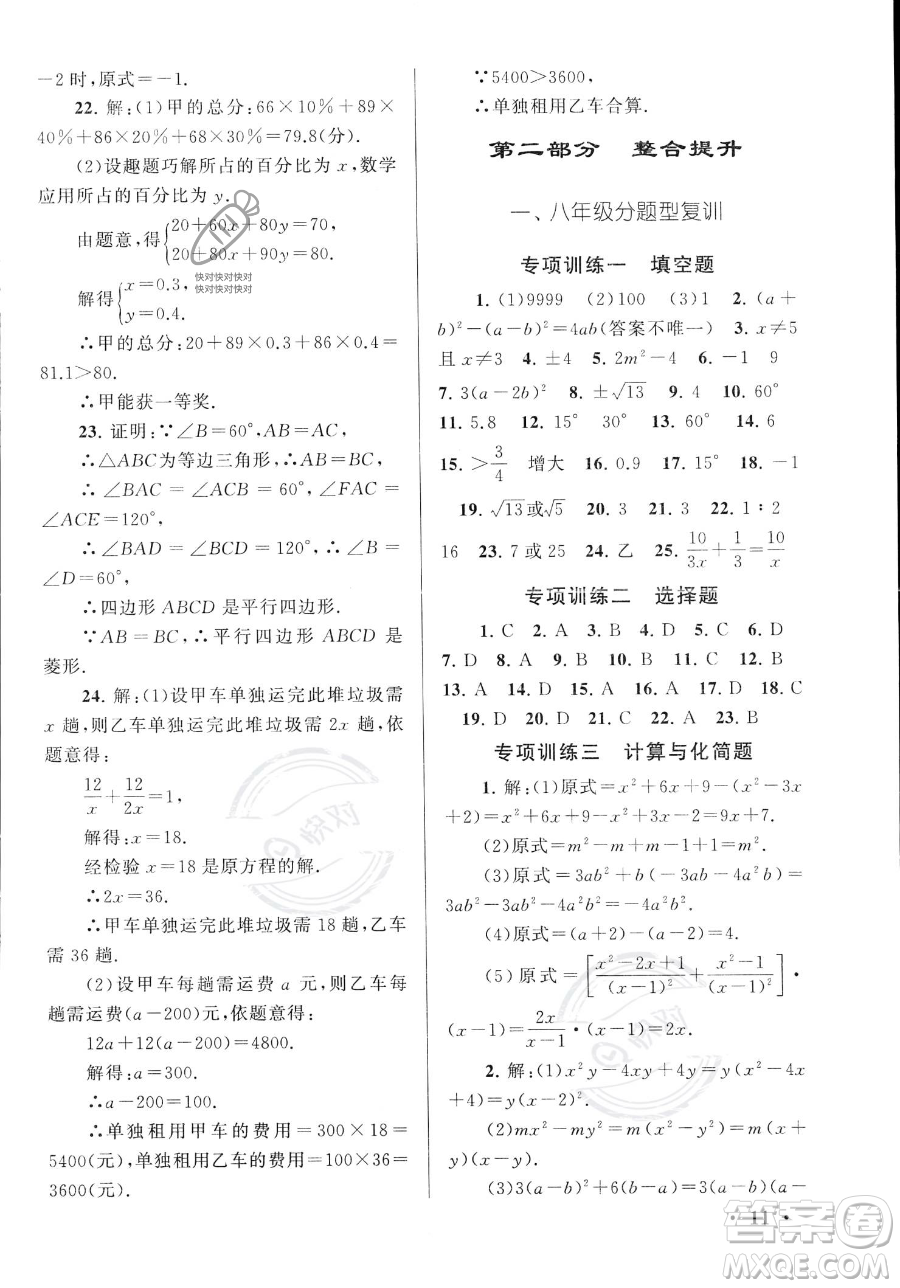 -2时,原式=-1.
22. 解:(1)甲的总分:66×10%+89×
40%+86×20%+68×30%=79.8(分).
(2)设趣题巧解所占的百分比为x,数学
应用所占的百分比为y.
由题意,得{20+60x+80y=70,
20+80x+90y=80,
解得{x=0.3,
y=0.4.
快对快对快对
快对快对快对
∴甲的总分:20+89×0.3+86×0.4=
81.1>80.
∴甲能获一等奖.
23. 证明:∵∠B=60°,AB=AC,
∴△ABC为等边三角形,
∴∠BAC=∠BCA=60°,∠FAC=
∠ACE=120°,
∴∠BAD=∠BCD=120°,∴∠B=
∠D=60°,
∴四边形ABCD是平行四边形.
∵AB=BC,∴平行四边形ABCD是
菱形.
24. 解:(1)设甲车单独运完此堆垃圾需
x趟,则乙车单独运完此堆垃圾需2x趟,依
题意得:
12/x+12/2x=1,
解得:x=18.
经检验x=18是原方程的解.
∴2x=36.
∴甲车单独运完此堆垃圾需18趟,乙车
需36趟.
(2)设甲车每趟需运费a元,则乙车每
趟需运费(a-200)元,依题意得:
12a+12(a-200)=4800.
解得:a=300.
∴a-200=100.
∴单独租用甲车的费用=300×18=
5400(元),单独租用乙车的费用=100×36=
3600(元).
∵5400>3600,
∴单独租用乙车合算.
第二部分 整合提升
一、八年级分题型复训
专项训练一 填空题
1. (1)9999 (2)100 (3)1 2. (a+
b)²-(a-b)²=4ab(答案不唯一) 3. x≠5
且x≠3 4. ±4 5. 2m²-4 6. -1 9
7. 3(a-2b)² 8. ±√13 9. 4 10. 60°
11. 5.8 12. 15° 30° 13. 60° 14. 10
15. >3/4 增大 16. 0.9 17. x≥0 18. -1
19. √13或√5 20. 3 21. 3 22. 1∶2
16 23. 7或25 24. 乙 25. 10/3x+1/3=10/x
专项训练二 选择题
1. C 2. A 3. C 4. C 5. C 6. D
7. D 8. A 9. B 10. D 11. D 12. B
13. A 14. A 15. D 16. D 17. D 18. C
19. D 20. D 21. C 22. A 23. A 24. B
专项训练三 计算与化简题
1. 解:(1)原式=x²+6x+9-(x²-3x+
2)=x²+6x+9-x²+3x-2=9x+7.
(2)原式=m²-m+m-1=m²-1.
(3)原式=3ab²+6ab²-3ab²-6ab²+
3ab²-6ab²=-3ab².
(4)原式=(a+2)(a-2)=a²-4.
(5)原式=[(x²-2x+1)/(x-1)²+(x²-1)/(x-1)²]·
(x-1)=2x/(x-1)·(x-1)=2x.
2. 解:(1)x²y-4xy+4y=y(x²-4x+
4)=y(x-2)².
(2)mx²-my²=m(x²-y²)=m(x+y)
(x-y).
(3)3(a-b)²+6(b-a)=3(a-b)(a-
· 11 ·
快对
答案圈
MXQE.COM